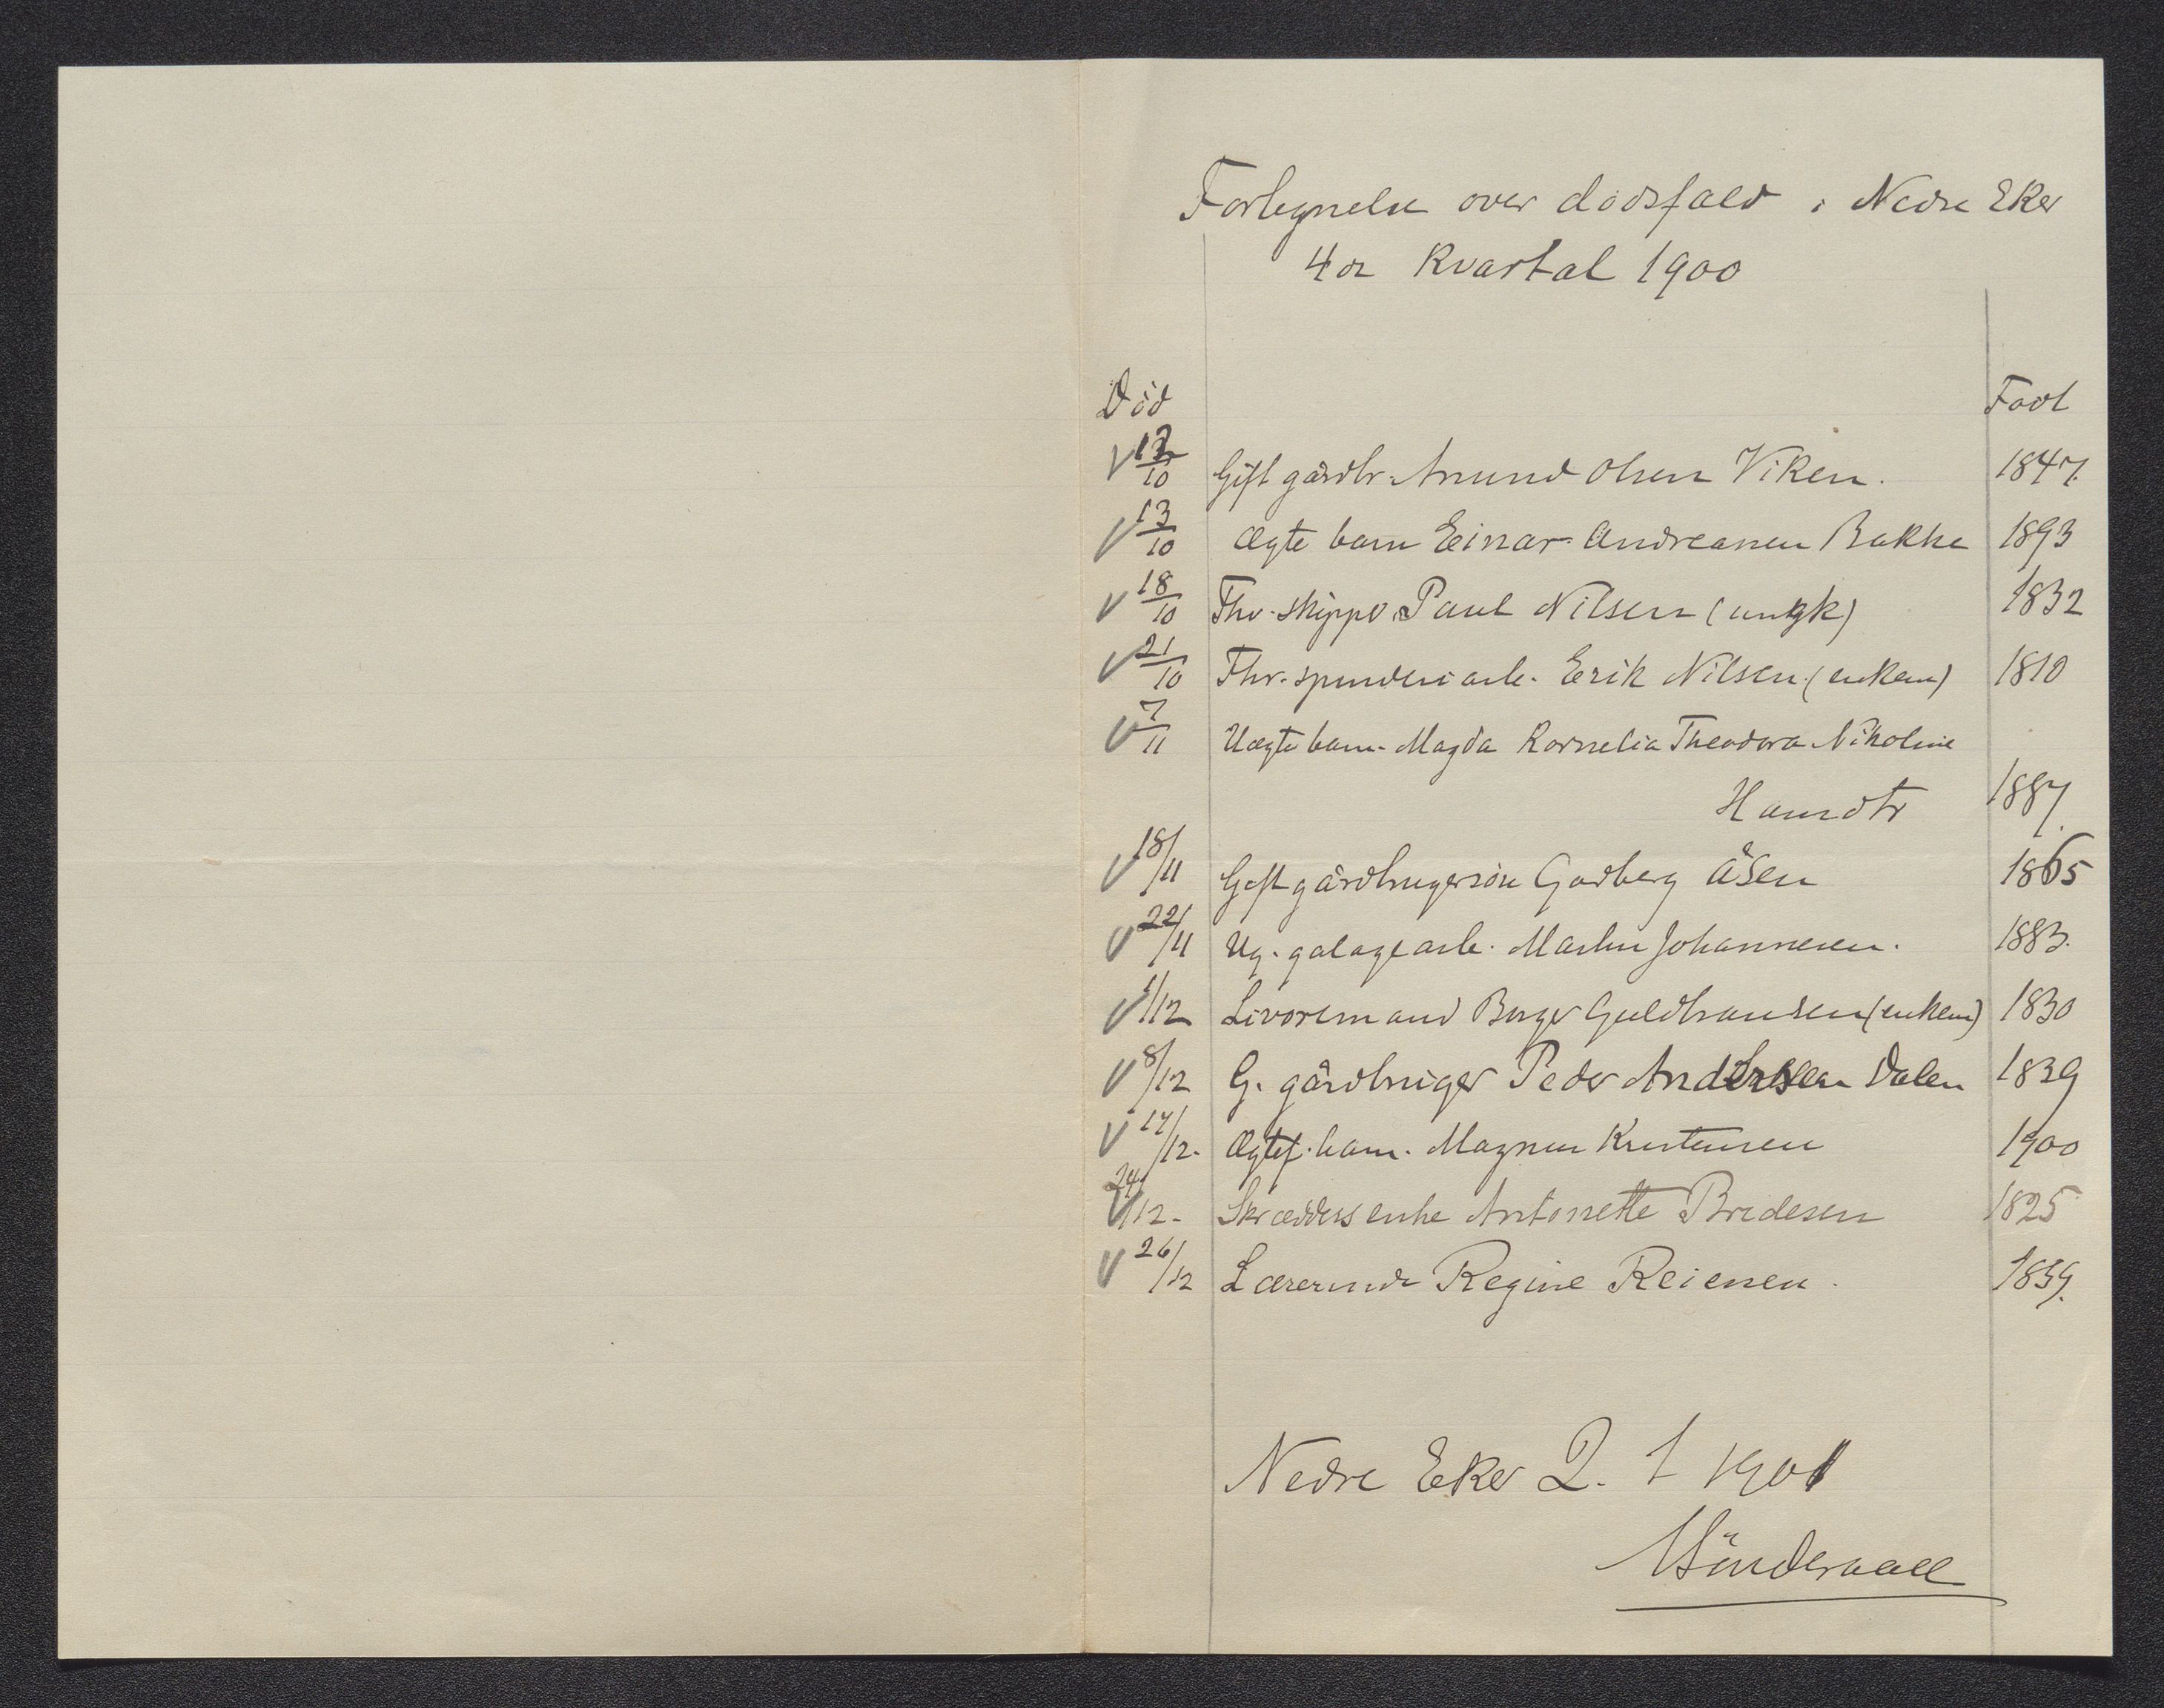 Fortegnelse over dødsfald i Nedre Eker
4de Kvartal 1900
Død Født
V 12/10 Gift gårdbr. Anund Olsen Viken. 1847.
V 13/10 Ægte barn Einar Andreasen Bakke 1893
V 18/10 Fhv. skipper Paul Nilsen (ungk) 1832
V 21/10 Fhv. spinderiarb. Erik Nilsen (enkem) 1810
V 7/11 Uægte barn. Magda Kornelia Theodora Nikoline
Hansdtr 1887.
V 18/11 Gift gårdbrugersøn Gudberg Åsen 1865
V 22/11 Ug. arb. Martin Johannesen. 1883.
V 1/12 Livøremand Borger Guldbrandsen (enkem) 1830
V 8/12 G. gårdbruger Peder Andersen Dalen 1839
V 17/12. Ægtef. barn. Magnus Kristensen 1900
V 24/12. Skrædders enke Antonette Bredesen 1825
V 26/12 Lærerinde Regine Reiersen. 1859.
Nedre Eker 2. 1 1901